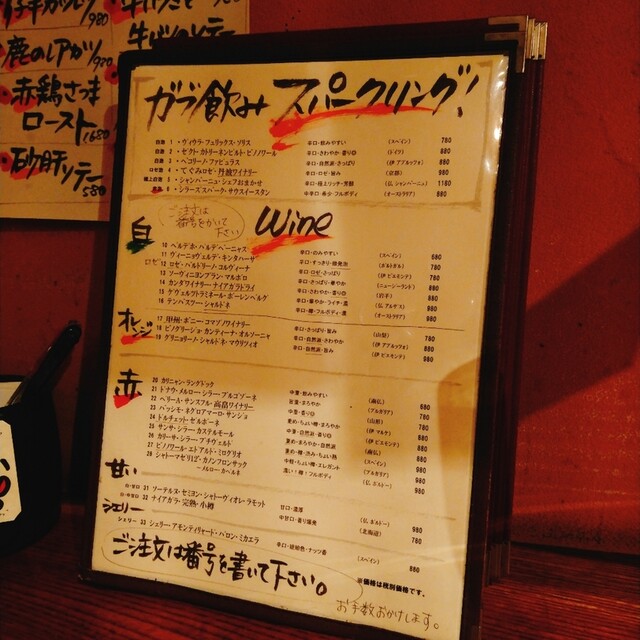 鹿のレアカツ 920
赤鶏さつま
ロースト 1680
砂肝ソテー
580
ガブ飲みスパークリング!
自泡 1・ヴィウラ・フェリックス・ソリス 辛口・飲みやすい (スペイン) 780
辛口・さわやか・香り◎ (ドイツ) 880
辛口・自然派・さっぱり (伊 アブルッツォ) 880
ロゼ泡 4・てぐみロゼ・丹波ワイナリー 辛口・ロゼ・旨み (京都) 980
5・シャンパーニュ・シェフおまかせ 辛口・極上リッチ・芳醇 (仏 シャンパーニュ) 1180
6・シリーズスパーク・サウスイースタン 中辛口・希少・フルボディ (オーストラリア) 880
ご注文は
番号をかいて
下さい
白 Wine
辛口・のみやすい (スペイン) 680
辛口・すっきり・微発泡 (ポルトガル) 780
ロゼ 12・ロゼ・バルドリーノ・コルヴィーナ 辛口・ロゼ・さっぱり (伊 ピエモンテ) 780
13・ソーヴィニヨンブラン・マルボロ 辛口・さっぱり・華やか (ニュージーランド) 880
14・カンダワイナリー・ナイアガラドライ 辛口・さわやか・香り◎ (岩手) 880
15・ゲヴュルツトラミネール・ボーレンベルグ 辛口・華やか・ライチ・濃 (仏 アルザス) 880
16・テンバスワー・シャルドネ 辛口・樽・フルボディ・濃 (オーストラリア) 980
オレンジ
17・甲州・ボニー・コマゾノワイナリー 辛口・さっぱり・旨み (山梨) 780
18・ピノグリージョ・カンティーナ・オルソーニャ 辛口・自然派・さわやか (伊 アブルッツォ) 780
19・グリニョリーノ・シャルドネ・マウリツィオ 辛口・自然派・旨み (伊 ピエモンテ) 980
赤
20・カリニャン・ラングドック 中重・飲みやすい (南仏) 680
21・ドナウ・メルロー・シラー・ブルゴゾーネ 甘重・まろやか (ブルガリア) 780
22・ベリーA・サンスフル・高畠ワイナリー 中重・香り◎ (山形) 780
23・パッシモ・ネグロアマーロ・サンジョ 重め・ちょい樽・まろやか (伊 マルケ) 880
24・ドルチェット・ゼルボーネ 中重・自然派・香り◎ (伊 ピエモンテ) 880
25・サンサ・シラー・カステルモール 重め・まろやか・自然派 (南仏) 880
26・カリーサ・シラー・プチヴェルド 重め・樽・渋み・ちょい熟 (スペイン) 980
27・ピノノワール・エトアルト・ミログリオ 中重・ちょい樽・エレガント (ブルガリア) 980
28・シャトーマゼリはぼ・カノンフロンサック 濃い!樽・フルボディ (仏 ボルドー) 980
〜メルロー・カベルネ
甘い
31・ソーテルヌ・セミヨン・シャトーヴィオレ・ラモット 甘口・濃厚 (仏 ボルドー) 980
32・ナイアガラ・完熟・小樽 中甘口・香り爆発 (北海道) 780
シェリー
シェリー 33・シェリー・アモンティリャード・バロン・ミカエラ 辛口・琥珀色・ナッツ香 (スペイン) 880
ご注文は番号を書いて下さい。
※価格は税別価格です。
お手数おかけします。